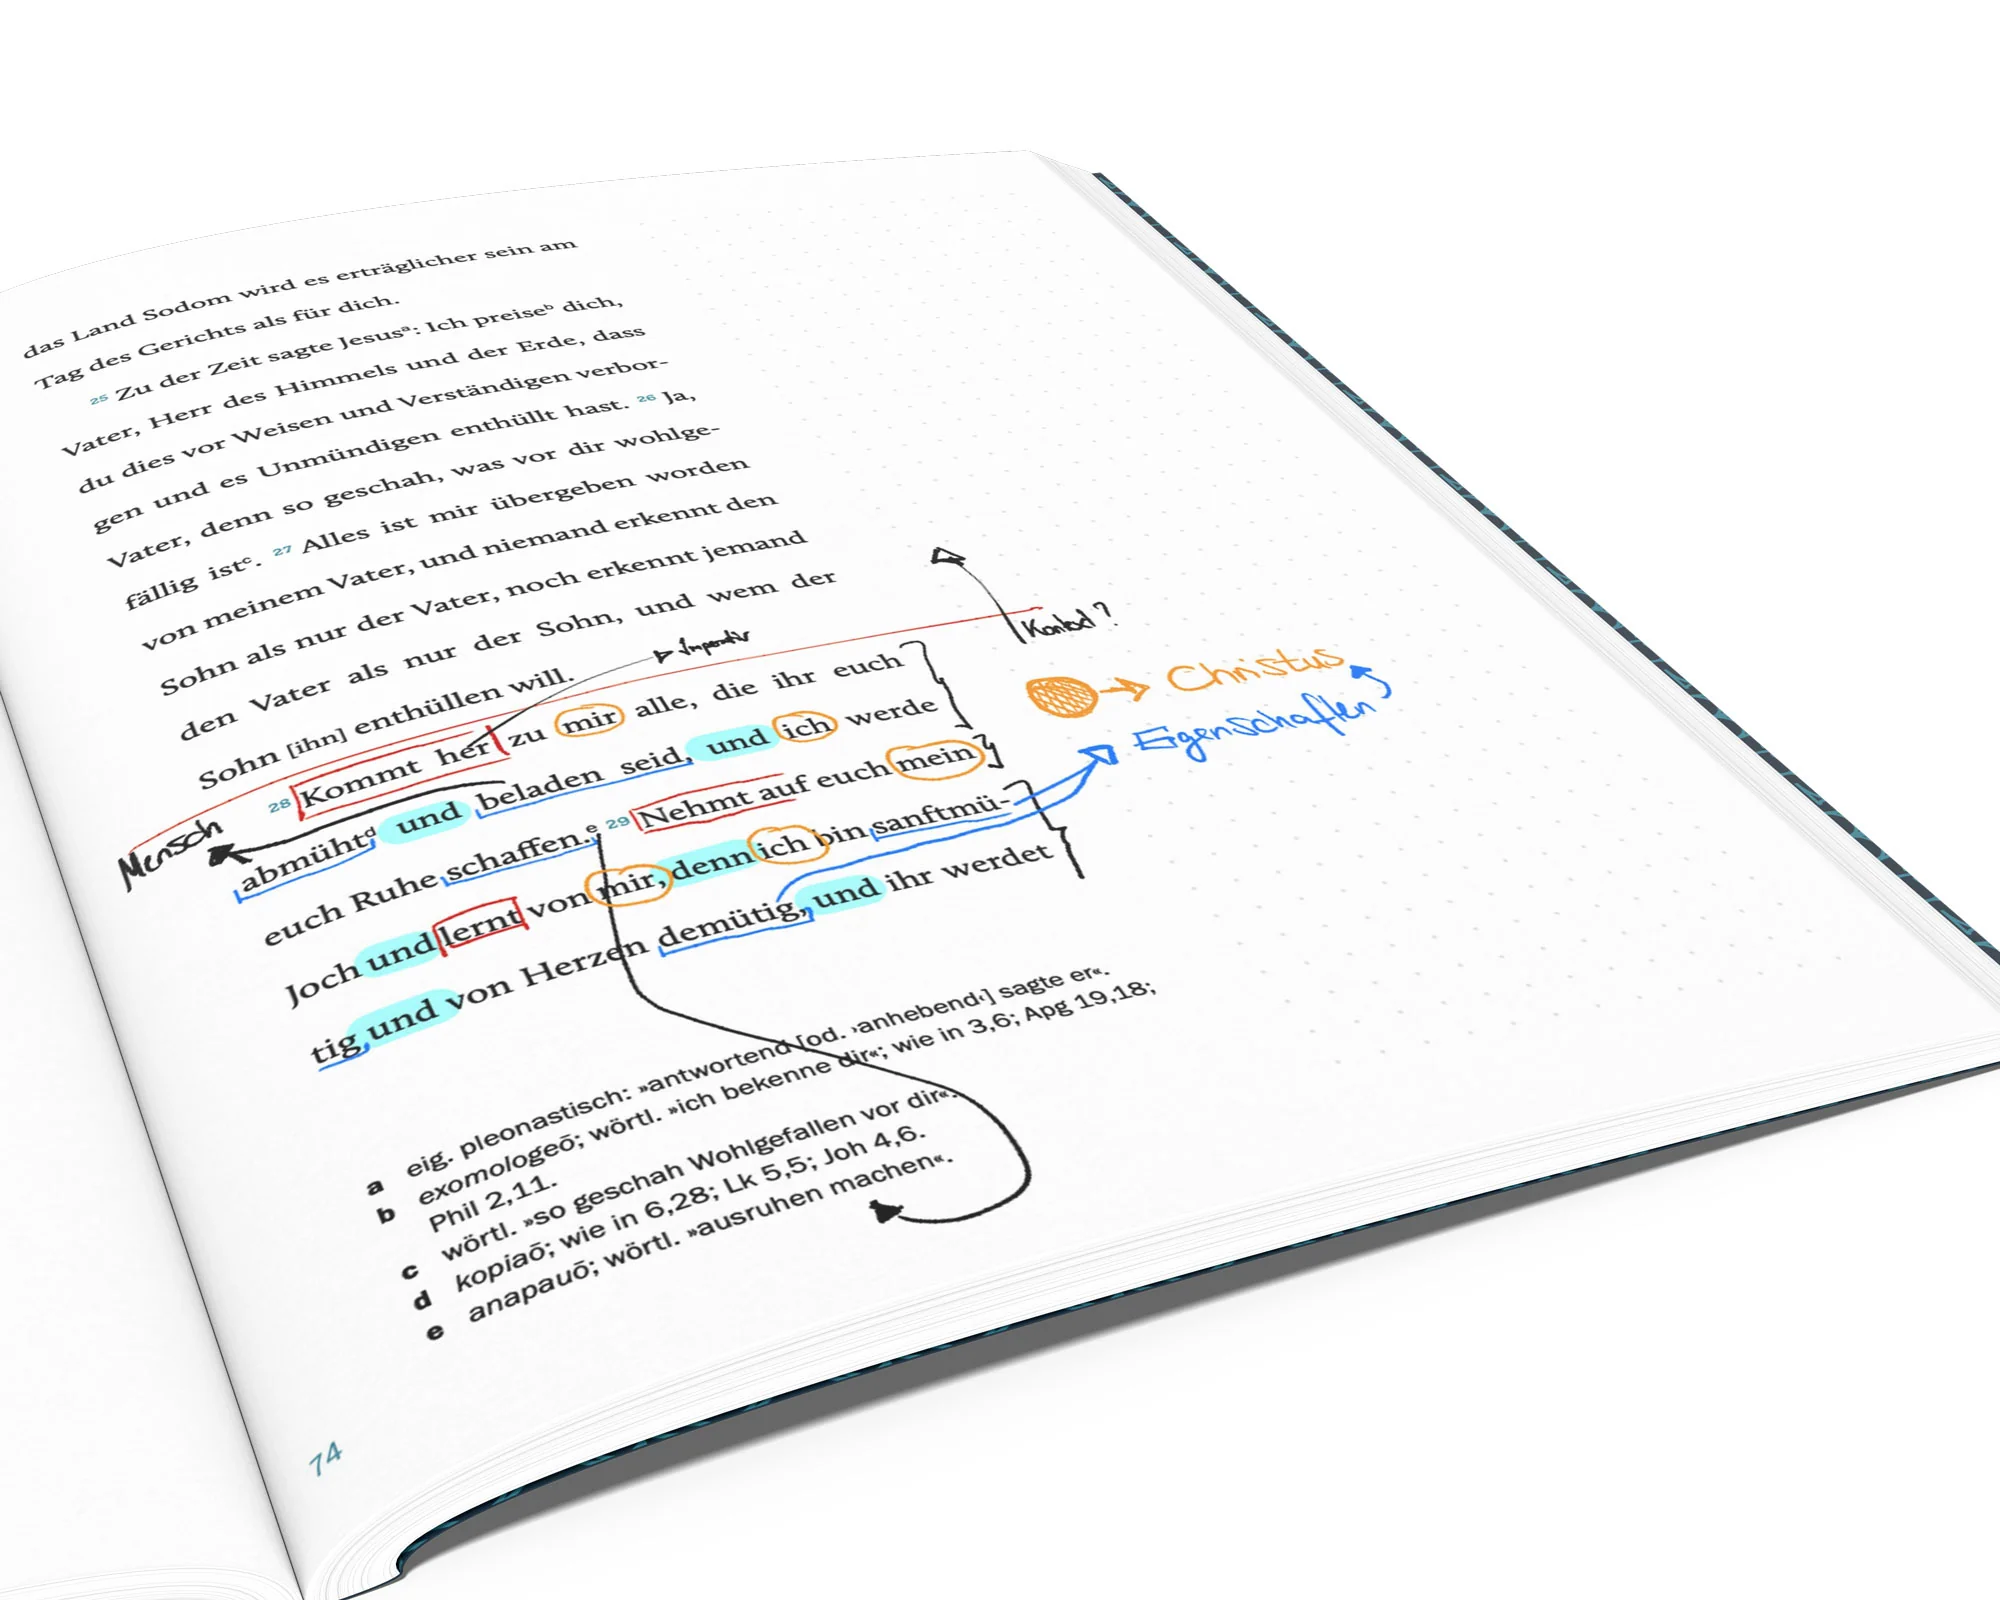 das Land Sodom wird es erträglicher sein am
Tag des Gerichts als für dich.
25 Zu der Zeit sagte Jesusᵃ: Ich preiseᵇ dich,
Vater, Herr des Himmels und der Erde, dass
du dies vor Weisen und Verständigen verbor-
gen und es Unmündigen enthüllt hast. 26 Ja,
Vater, denn so geschah, was vor dir wohlge-
fällig istᶜ. 27 Alles ist mir übergeben worden
von meinem Vater, und niemand erkennt den
Sohn als nur der Vater, noch erkennt jemand
den Vater als nur der Sohn, und wem der
Sohn [ihn] enthüllen will.
Imperativ
28 Kommt her zu mir alle, die ihr euch
abmühtᵈ und beladen seid, und ich werde
euch Ruhe schaffen.ᵉ 29 Nehmt auf euch mein
Joch und lernt von mir, denn ich bin sanftmü-
tig und von Herzen demütig, und ihr werdet
Mensch
Christus
Eigenschaften
a eig. pleonastisch: »antwortend [od. ›anhebend‹] sagte er«.
b exomologeō; wörtl. »ich bekenne dir«; wie in 3,6; Apg 19,18;
Phil 2,11.
c wörtl. »so geschah Wohlgefallen vor dir«.
d kopiaō; wie in 6,28; Lk 5,5; Joh 4,6.
e anapauō; wörtl. »ausruhen machen«.
74